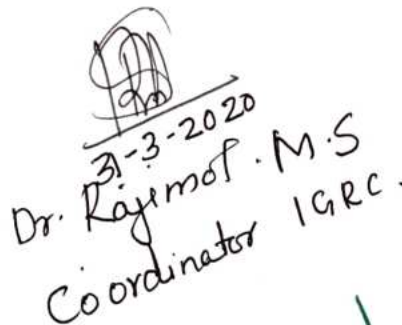 31-3-2020
Dr. Rajimol. M.S
Coordinator IGRC.